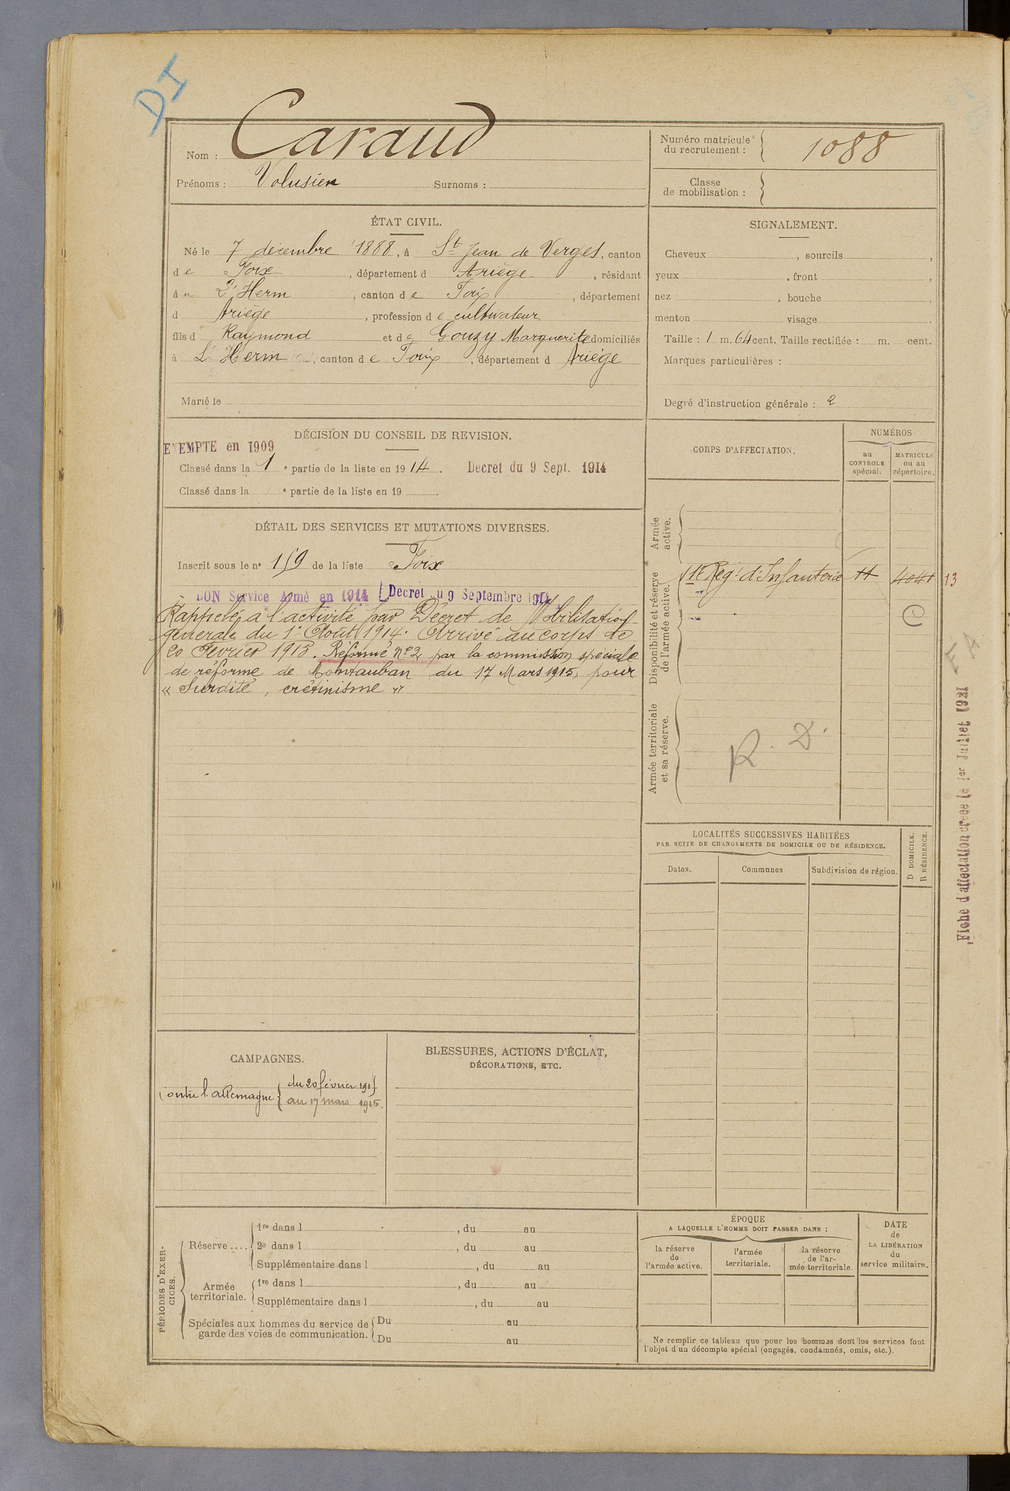 DI
Nom : Caraud
Prénoms : Volusien Surnoms :
Numéro matricule du recrutement : 1088
Classe de mobilisation :
ÉTAT CIVIL.
Né le 7 décembre 1888, à St Jean de Verges, canton
de Foix, département d Ariège, résidant
à L'Herm, canton de Foix, département
d Ariège, profession de cultivateur
fils d Raymond et de Gouzy Marguerite domiciliés
à L'Herm, canton de Foix, département d Ariège
Marié le
SIGNALEMENT.
Cheveux , sourcils ,
yeux , front ,
nez , bouche
menton visage
Taille : 1 m. 64 cent. Taille rectifiée : m. cent.
Marques particulières :
Degré d'instruction générale : 2
DÉCISION DU CONSEIL DE REVISION.
EXEMPTE en 1909
Classé dans la 1e partie de la liste en 1914. Decret du 9 Sept. 1914
Classé dans la e partie de la liste en 19 .
DÉTAIL DES SERVICES ET MUTATIONS DIVERSES.
Inscrit sous le n° 159 de la liste Foix
BON Service Armé en 1914 (Decret du 9 Septembre 1914
Rappelé à l'activité par Décret de Mobilisation
générale du 1er Août 1914. Arrivé au corps le
20 Février 1915. Réformé n°2 par la commission spéciale
de réforme de Montauban du 17 Mars 1915, pour
« Surdité, crétinisme »
CORPS D'AFFECTATION.
NUMÉROS
au CONTROLE spécial.
MATRICULE ou au répertoire.
Armée active.
Disponibilité et réserve de l'armée active.
11e Régt d'Infanterie 11 4041 13
C
Armée territoriale et sa réserve.
R. D.
F A
Fiche d'affectation créée le 1er Juillet 1921
LOCALITÉS SUCCESSIVES HABITÉES
PAR SUITE DE CHANGEMENTS DE DOMICILE OU DE RÉSIDENCE.
Dates. Communes Subdivision de région. D DOMICILE. R RÉSIDENCE.
CAMPAGNES.
Contre l'allemagne { du 20 février 1915
au 17 mars 1915.
BLESSURES, ACTIONS D'ÉCLAT,
DÉCORATIONS, ETC.
PÉRIODES D'EXERCICES.
Réserve .... 1re dans l , du au
2e dans l , du au
Supplémentaire dans l , du au
Armée territoriale. 1re dans l , du au
Supplémentaire dans l , du au
Spéciales aux hommes du service de garde des voies de communication. Du au
Du au
ÉPOQUE
A LAQUELLE L'HOMME DOIT PASSER DANS :
la réserve de l'armée active.
l'armée territoriale.
la réserve de l'armée territoriale.
DATE de LA LIBÉRATION du service militaire.
Ne remplir ce tableau que pour les hommes dont les services font
l'objet d'un décompte spécial (engagés, condamnés, omis, etc.).